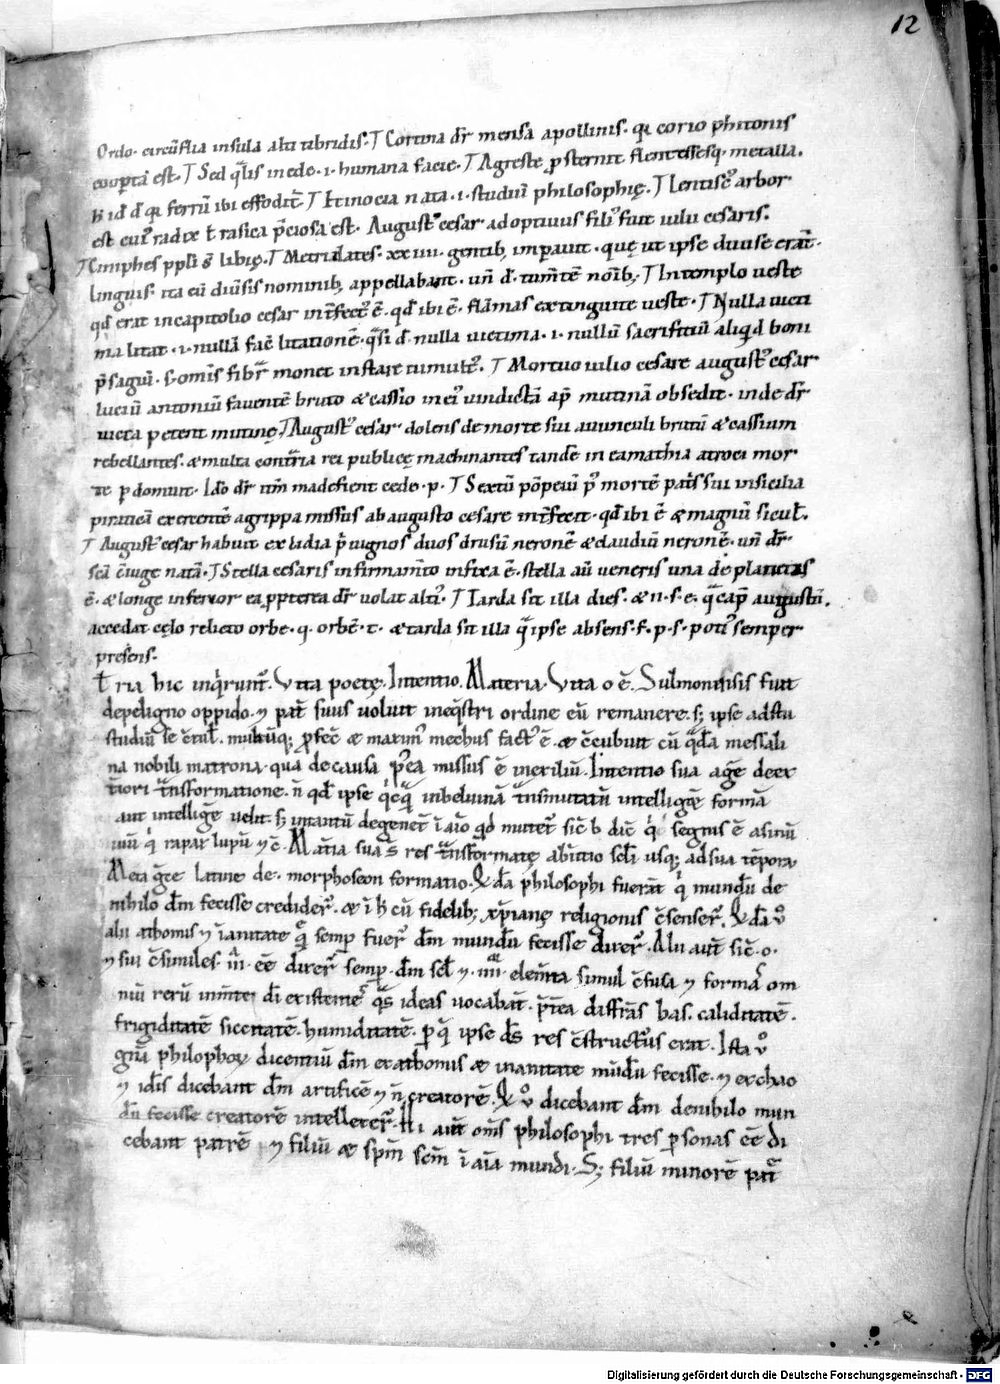 12
Ordo. circūflua insula alti tibridis. ⁊ Cortina dr̄ mensa apollinis. qͥ corio phitonis
coopta est. ⁊ Sed qͣlis in ede .i. humana facie. ⁊ Agreste ꝑsternit flent essesq. metalla.
h̄ id d̄ qͥ ferrū ibi effodit̄. ⁊ Itinocia nata .i. studiū philosophię. ⁊ Lentiscꝰ arbor
est cuiꝰ radix ł rasica p̄ciosa est. Augustꝰ cesar adoptiuus filiꝰ fuit iulii cesaris.
⁊ Ciniphes ppłi s̄t libię. ⁊ Metridates. xxiiii. gentib; imꝑauit. quę ut ipse diuise erāt.
linguis. ita cū diūsis nominib; appellabant. un̄ d̄. tum̄tē noīb;. ⁊ In templo ueste
qd̄ erat in capitolio cesar int̄fect̄ ē. qd̄ ibi ē. flāmas extinguite ueste. ⁊ Nulla uicti
ma litat .i. nullā fac̄ litationē. qͣsi d̄. nulla uictima .i. nullū sacrifitiū aliqͥd boni
p̄sagiū. s. omīs fibr̄ monet instare tumultꝰ. ⁊ Mortuo iulio cesare augustꝰ cesar
luciū antoniū fauentē bruto & cassio in eiꝰ uindictā ap̄ mutinā obsedit. inde dr̄
uicta petent mutinę. ⁊ Augustꝰ cesar dolens de morte sui auunculi brutū & cassium
rebellantes. & multa contͣria rei publicę machinantes tandē in eamathia atroci mor
te ꝑdomuit. Ido dr̄ tim̄ madefient cede .p. ⁊ Sextū pōpeiū pꝰ mortē patͥs sui in sicilia
piraticā exercentē agrippa missus ab augusto cesare int̄fecit. qd̄ ibi ē & magnū sicuł.
⁊ Augustꝰ cesar habuit ex lidia p̄uignos duos drusū neronē & claudiū neronē. un̄ dr̄.
scā c̄iuge natā. ⁊ Stella cesaris in firmam̄to infixa ē. stella aū ueneris una de planetis
ē. & longe inferior ea ꝓpterea dr̄ uolat altiꝰ. ⁊ Tarda sit illa dies. & n. s. e. qͣ cap̄ augustū.
accedat cęlo relicto orbe .q. orbē .t. & tarda sit illa qͣ ipse absens .f. p. s. potiꝰ semper
presens.
Tria hic inqͥrunt᷑. Vita poetę. Intentio. Materia. Vita o ē. Sulmonēsis fuit
de peligno oppido. ⁊ pat̄ suus uoluit in eqͥstri ordine eū remanere. s; ipse ad stu
studiū se c̄tuł. multūq; ꝓfec̄ & maximꝰ mechus factꝰ ē. & c̄cubuit cū qͣdā messali
na nobili matrona. qua de causa pͦea missus ē in exiliū. Intentio sua agē de ex
t̄iori tͣnsformatione. n̄ qd̄ ipse qͥcqͣ in beluinā tͣnsmutatū intelligēę formā
aut intelligē uelit. s; uitantū degenet̄ ī aīo qͦd mutet᷑ sic̄ b dic̄ qͥ segnis ē asinū
uiū qͥ rapax lupū ⁊c̄. Mat̄ia sua s̄t res tͣnsformatę ab īitio scłi usq; ad sua tēpora
Meta gͣce latine de. morphoseon formatio. Qͥdā philosophi fuerāt qͥ mundū de
nihilo dm̄ fecisse credider̄. & ī h̄ cū fidelib; xp̄ianę religionis c̄senser̄. Qͥdā ū
alii athomis ⁊ īanitate qͥ semꝑ fuer̄ dm̄ mundū fecisse dixer̄. Alii aut̄ sic̄ .o.
⁊ sui c̄similes. iii. eē dixer̄ semꝑ. dm̄ scł ⁊ .iiii. elem̄ta simul c̄fusa ⁊ formā om
niū rerū in m̄te di existentē qͣs ideas uocabāt. p̄tea diffrās has. caliditatē.
frigiditatē siccitatē. humiditatē. ꝑ qͣ ipse ds̄ res c̄structurus erat. Ista ū
gn̄a philophoꝝ dicentiū dm̄ ex athomis & inanitate mūdū fecisse. ⁊ ex chao
⁊ ideis dicebant dm̄ artificē ⁊ n̄ creatorē. Qͥ ū dicebant dm̄ de nihilo mun
dū fecisse creatorē intellexer̄. Hi aut̄ om̄s philosophi tres ꝑsonas eē di
cebant patrē ⁊ filiū & spm̄ scm̄ ī aīa mundi. S; filiū minorē patͣ
Digitalisierung gefördert durch die Deutsche Forschungsgemeinschaft - DFG